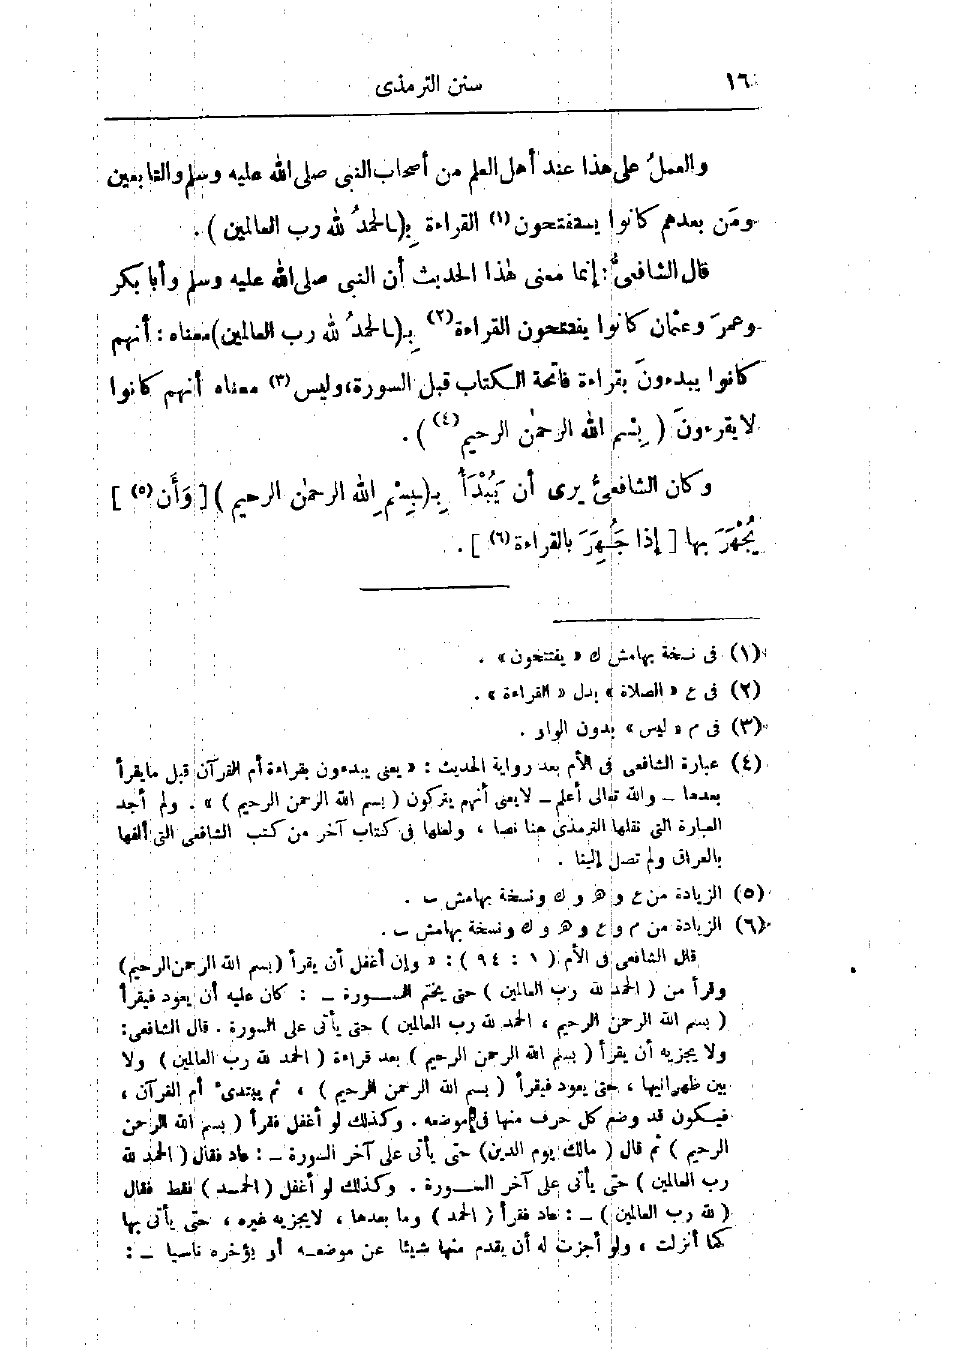 ١٦ سنن الترمذى
والعملُ على هذا عند أهل العلم من أصحاب النبى صلى الله عليه وسلم والتابعين
ومَن بعدهم كانوا يستفتحون (١) القراءة بِـ(ـالحمدُ لله رب العالمين ) .
قال الشافعىُّ : إنما معنى هذا الحديث أن النبى صلى الله عليه وسلم وأبا بكر
وعمرَ وعثمان كانوا يفتتحون القراءة (٢) بِـ(ـالحمدُ لله رب العالمين) معناه : أنهم
كانوا يبدءونَ بقراءة فاتحة الكتاب قبل السورة، وليس (٣) معناه أنهم كانوا
لا يقرءونَ ( بِسْمِ الله الرحمن الرحيم (٤) ) .
وكان الشافعىُّ يرى أن يُبْدَأَ بِـ(ـبِسِمْ الله الرحمن الرحيم ) [ وَأَن (٥) ]
يُجْهَرَ بها [ إذا جُهِرَ بالقراءة (٦) ] .
(١) فى نسخة بهامش ك « يفتتحون » .
(٢) فى ع « الصلاة » بدل « القراءة » .
(٣) فى م « ليس » بدون الواو .
(٤) عبارة الشافعى فى الأم بعد رواية الحديث : « يعنى يبدءون بقراءة أم القرآن قبل ما يقرأ
بعدها ــ والله تعالى أعلم ــ لا يعنى أنهم يتركون ( بسم الله الرحمن الرحيم ) » . ولم أجد
العبارة التى نقلها الترمذى هنا نصا ، ولعلها فى كتاب آخر من كتب الشافعى التى ألفها
بالعراق ولم تصل إلينا .
(٥) الزيادة من ع و هـ و ك ونسخة بهامش ب .
(٦) الزيادة من م و ع و هـ و ك ونسخة بهامش ب .
قال الشافعى فى الأم ( ١ : ٩٤ ) : « وإن أغفل أن يقرأ (بسم الله الرحمن الرحيم)
وقرأ من ( الحمد لله رب العالمين ) حتى يختم الســورة ــ : كان عليه أن يعود فيقرأ
( بسم الله الرحمن الرحيم ، الحمد لله رب العالمين ) حتى يأتى على السورة . قال الشافعى :
ولا يجزيه أن يقرأ ( بسم الله الرحمن الرحيم ) بعد قراءة ( الحمد لله رب العالمين ) ولا
بين ظهرانيها ، حتى يعود فيقرأ ( بسم الله الرحمن الرحيم ) ، ثم يبتدىء أم القرآن ،
فيكون قد وضع كل حرف منها فى موضعه . وكذلك لو أغفل فقرأ ( بسم الله الرحمن
الرحيم ) ثم قال ( مالك يوم الدين) حتى يأتى على آخر السورة ــ : عاد فقال ( الحمد لله
رب العالمين ) حتى يأتى على آخر الســورة . وكذلك لو أغفل ( الحمــد ) فقط فقال
( لله رب العالمين ) ــ : عاد فقرأ ( الحمد ) وما بعدها ، لا يجزيه غيره ، حتى يأتى بها
كما أنزلت ، ولو أجزت له أن يقدم منها شيئا عن موضعــه أو يؤخره ناسيا ــ :